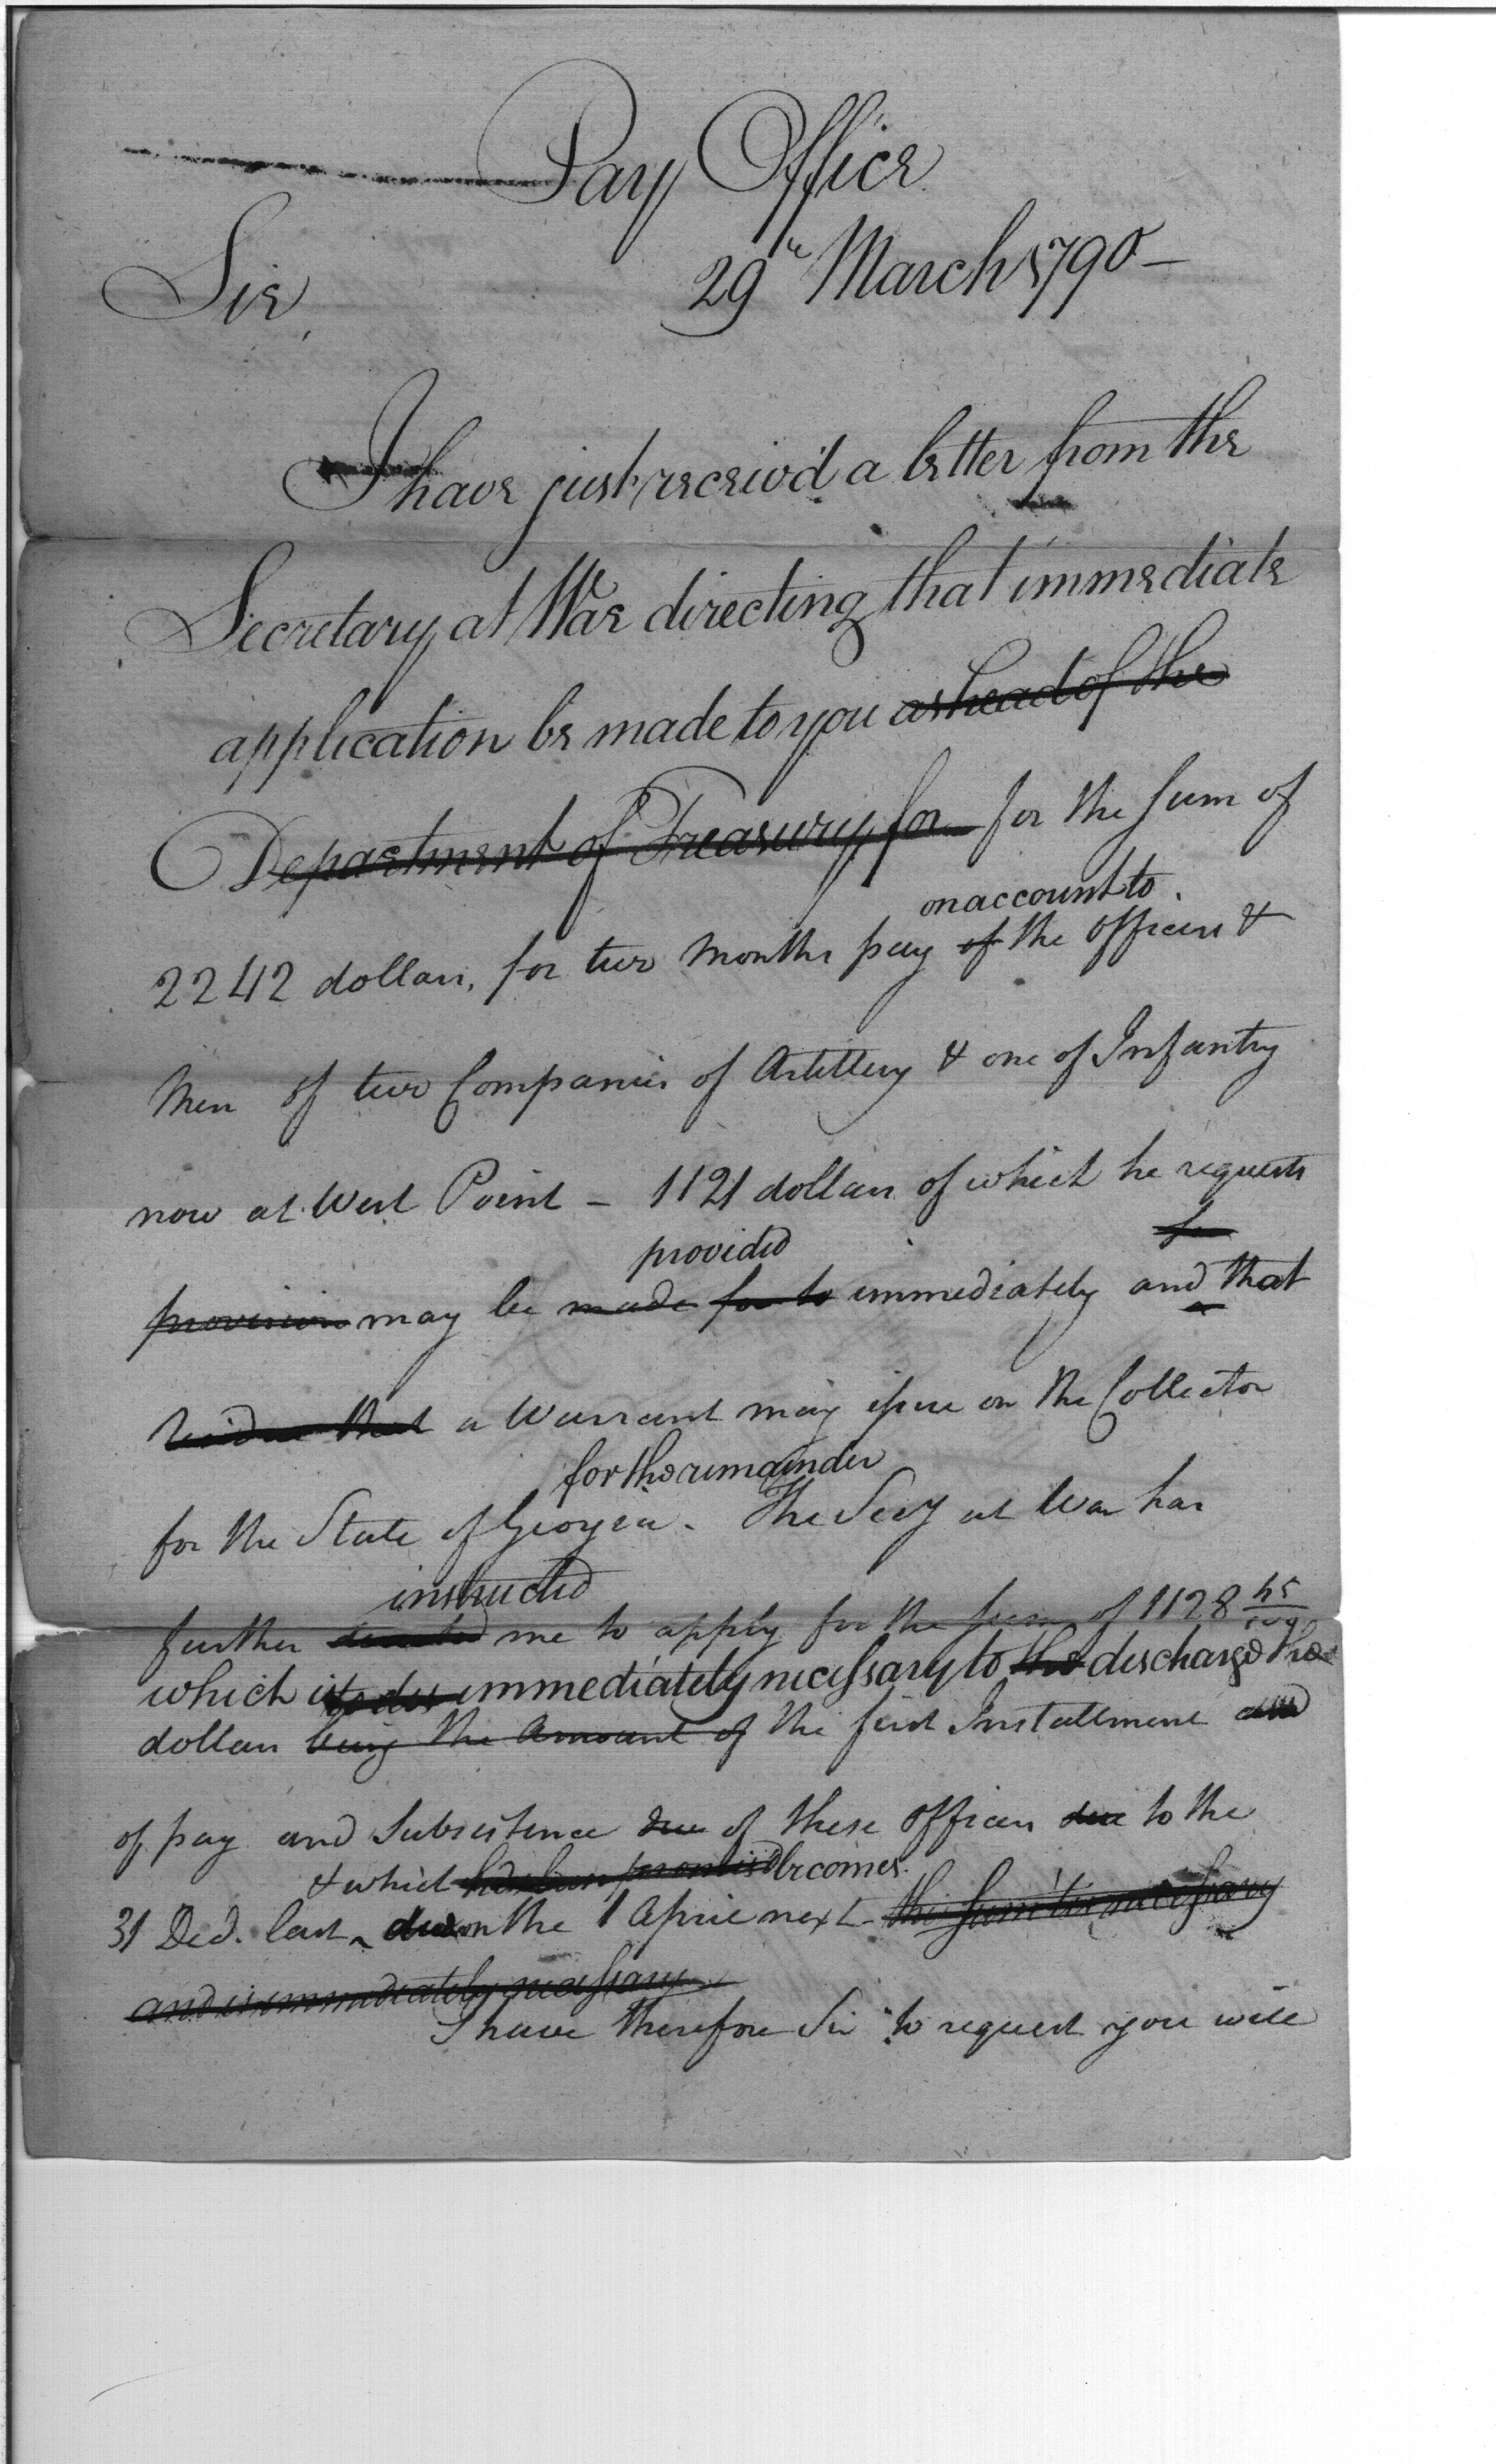 Pay Office
29th March 1790 —
Sir,
I have just receiv'd a letter from the
Secretary at War directing that immediate
application be made to you as head of the
Department of Treasury for for the sum of
on account to
2242 dollars, for two Months pay of the officers &
Men of two Companies of Artillery & one of Infantry
now at West Point – 1121 dollars of which he requests
provided
provision may be made for to immediately and that
that a Warrant may issue on the Collector
for the remainder
for the State of Georgia. The Secy at War has
instructed
further directed me to apply for the sum of 1128
which is immediately necessary to the discharge the
dollars being the Amount of the first Installment
of pay and Subsistence due of these officers due to the
& which becomes
31 Decd. last due on the 1 April next – this sum is necessary
and is immediately necessary
I have therefore Sir to request you will